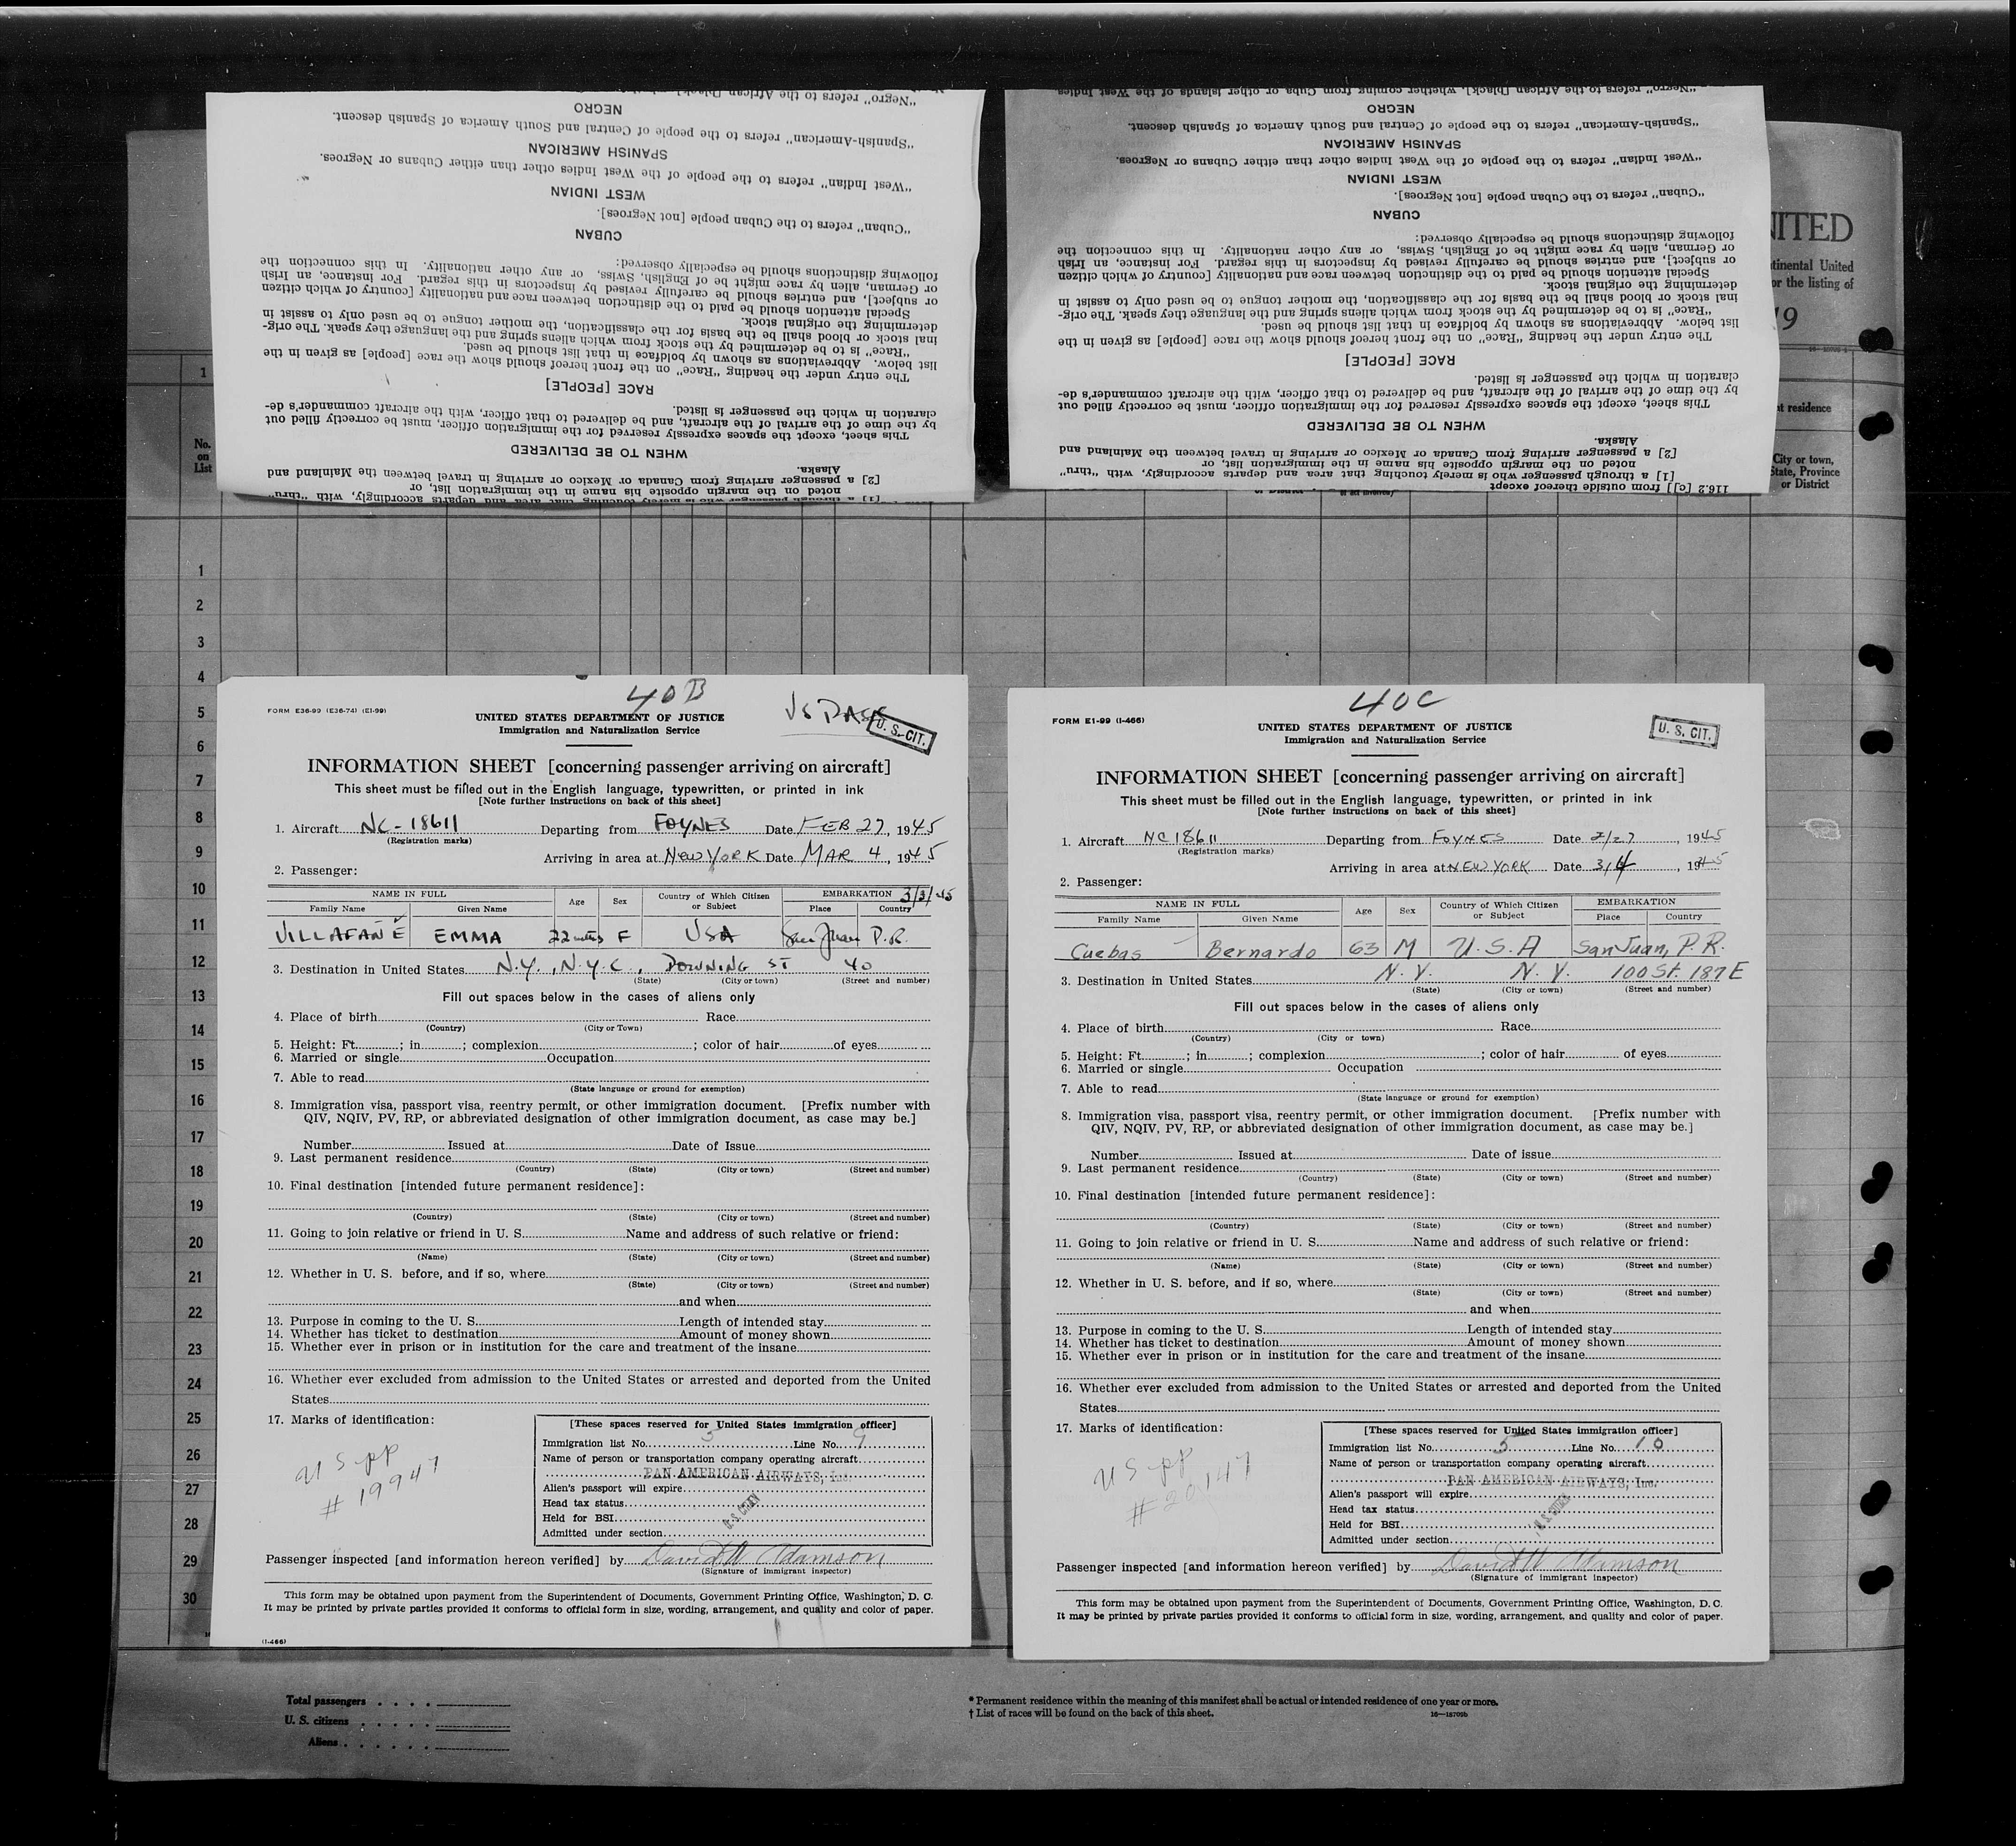 "Negro" refers to the African [black],
NEGRO
"Spanish-American" refers to the people of Central and South America of Spanish descent.
SPANISH AMERICAN
"West Indian" refers to the people of the West Indies other than either Cubans or Negroes.
WEST INDIAN
"Cuban" refers to the Cuban people [not Negroes].
CUBAN
following distinctions should be especially observed:
or German, alien by race might be of English, Swiss, or any other nationality. In this connection the
or subject], and entries should be carefully revised by inspectors in this regard. For instance, an Irish
Special attention should be paid to the distinction between race and nationality [country of which citizen
determining the original stock.
inal stock or blood shall be the basis for the classification, the mother tongue to be used only to assist in
"Race" is to be determined by the stock from which aliens spring and the language they speak. The orig-
list below. Abbreviations as shown by boldface in that list should be used.
The entry under the heading "Race" on the front hereof should show the race [people] as given in the
RACE [PEOPLE]
claration in which the passenger is listed.
by the time of the arrival of the aircraft, and be delivered to that officer, with the aircraft commander's de-
This sheet, except the spaces expressly reserved for the immigration officer, must be correctly filled out
WHEN TO BE DELIVERED
Alaska.
[2] a passenger arriving from Canada or Mexico or arriving in travel between the Mainland and
noted on the margin opposite his name in the immigration list, or
[1] a through passenger who is merely touching that area and departs accordingly, with "thru"
"Negro" refers to the African [black], whether coming from Cuba or other islands of the West Indies
NEGRO
"Spanish-American" refers to the people of Central and South America of Spanish descent.
SPANISH AMERICAN
"West Indian" refers to the people of the West Indies other than either Cubans or Negroes.
WEST INDIAN
"Cuban" refers to the Cuban people [not Negroes].
CUBAN
following distinctions should be especially observed:
or German, alien by race might be of English, Swiss, or any other nationality. In this connection the
or subject], and entries should be carefully revised by inspectors in this regard. For instance, an Irish
Special attention should be paid to the distinction between race and nationality [country of which citizen
determining the original stock.
inal stock or blood shall be the basis for the classification, the mother tongue to be used only to assist in
"Race" is to be determined by the stock from which aliens spring and the language they speak. The orig-
list below. Abbreviations as shown by boldface in that list should be used.
The entry under the heading "Race" on the front hereof should show the race [people] as given in the
RACE [PEOPLE]
claration in which the passenger is listed.
by the time of the arrival of the aircraft, and be delivered to that officer, with the aircraft commander's de-
This sheet, except the spaces expressly reserved for the immigration officer, must be correctly filled out
WHEN TO BE DELIVERED
Alaska.
[2] a passenger arriving from Canada or Mexico or arriving in travel between the Mainland and
noted on the margin opposite his name in the immigration list, or
[1] a through passenger who is merely touching that area and departs accordingly, with "thru"
116.2 [c]] from outside thereof except
NITED
tinental United
or the listing of
19
t residence
City or town,
State, Province
or District
1
No.
on
List
1
2
3
4
5
6
7
8
9
10
11
12
13
14
15
16
17
18
19
20
21
22
23
24
25
26
27
28
29
30
40B
FORM E36-99 (E36-74) (E1-99)
UNITED STATES DEPARTMENT OF JUSTICE
Immigration and Naturalization Service
US PASS
U. S. CIT.
INFORMATION SHEET [concerning passenger arriving on aircraft]
This sheet must be filled out in the English language, typewritten, or printed in ink
[Note further instructions on back of this sheet]
1. Aircraft NC-18611 Departing from FOYNES Date FEB 27, 1945
(Registration marks)
Arriving in area at NEW YORK Date MAR 4, 1945
2. Passenger:
NAME IN FULL Age Sex Country of Which Citizen or Subject EMBARKATION 3/3/45
Family Name Given Name Place Country
VILLAFAÑE EMMA 22 mths F USA San Juan P.R.
3. Destination in United States N.Y., N.Y.C, DOWNING ST 40
(State) (City or town) (Street and number)
Fill out spaces below in the cases of aliens only
4. Place of birth Race
(Country) (City or Town)
5. Height: Ft. ; in ; complexion ; color of hair of eyes
6. Married or single Occupation
7. Able to read
(State language or ground for exemption)
8. Immigration visa, passport visa, reentry permit, or other immigration document. [Prefix number with
QIV, NQIV, PV, RP, or abbreviated designation of other immigration document, as case may be.]
Number Issued at Date of Issue
9. Last permanent residence
(Country) (State) (City or town) (Street and number)
10. Final destination [intended future permanent residence]:
(Country) (State) (City or town) (Street and number)
11. Going to join relative or friend in U. S. Name and address of such relative or friend:
(Name) (State) (City or town) (Street and number)
12. Whether in U. S. before, and if so, where
(State) (City or town) (Street and number)
and when
13. Purpose in coming to the U. S. Length of intended stay
14. Whether has ticket to destination Amount of money shown
15. Whether ever in prison or in institution for the care and treatment of the insane
16. Whether ever excluded from admission to the United States or arrested and deported from the United
States
17. Marks of identification:
U S pp
# 19947
[These spaces reserved for United States immigration officer]
Immigration list No. 5 Line No. 9
Name of person or transportation company operating aircraft
PAN AMERICAN AIRWAYS, Inc.
Alien's passport will expire
Head tax status
Held for BSI
Admitted under section
Passenger inspected [and information hereon verified] by David W Adamson
(Signature of immigrant inspector)
This form may be obtained upon payment from the Superintendent of Documents, Government Printing Office, Washington, D. C.
It may be printed by private parties provided it conforms to official form in size, wording, arrangement, and quality and color of paper.
(I-466)
40C
FORM E1-99 (I-466)
UNITED STATES DEPARTMENT OF JUSTICE
Immigration and Naturalization Service
U. S. CIT.
INFORMATION SHEET [concerning passenger arriving on aircraft]
This sheet must be filled out in the English language, typewritten, or printed in ink
[Note further instructions on back of this sheet]
1. Aircraft NC 18611 Departing from FOYNES Date 2/27, 1945
(Registration marks)
Arriving in area at NEW YORK Date 3/4, 1945
2. Passenger:
NAME IN FULL Age Sex Country of Which Citizen or Subject EMBARKATION
Family Name Given Name Place Country
Cuebas Bernardo 63 M U.S.A San Juan, P.R.
3. Destination in United States N.Y. N.Y. 100 St. 187 E
(State) (City or town) (Street and number)
Fill out spaces below in the cases of aliens only
4. Place of birth Race
(Country) (City or town)
5. Height: Ft. ; in ; complexion ; color of hair of eyes
6. Married or single Occupation
7. Able to read
(State language or ground for exemption)
8. Immigration visa, passport visa, reentry permit, or other immigration document. [Prefix number with
QIV, NQIV, PV, RP, or abbreviated designation of other immigration document, as case may be.]
Number Issued at Date of issue
9. Last permanent residence
(Country) (State) (City or town) (Street and number)
10. Final destination [intended future permanent residence]:
(Country) (State) (City or town) (Street and number)
11. Going to join relative or friend in U. S. Name and address of such relative or friend:
(Name) (State) (City or town) (Street and number)
12. Whether in U. S. before, and if so, where
(State) (City or town) (Street and number)
and when
13. Purpose in coming to the U. S. Length of intended stay
14. Whether has ticket to destination Amount of money shown
15. Whether ever in prison or in institution for the care and treatment of the insane
16. Whether ever excluded from admission to the United States or arrested and deported from the United
States
17. Marks of identification:
U S pp
# 20147
[These spaces reserved for United States immigration officer]
Immigration list No. 5 Line No. 10
Name of person or transportation company operating aircraft
PAN AMERICAN AIRWAYS, Inc.
Alien's passport will expire
Head tax status
Held for BSI
Admitted under section
Passenger inspected [and information hereon verified] by David W Adamson
(Signature of immigrant inspector)
This form may be obtained upon payment from the Superintendent of Documents, Government Printing Office, Washington, D. C.
It may be printed by private parties provided it conforms to official form in size, wording, arrangement, and quality and color of paper.
Total passengers
U. S. citizens
Aliens
* Permanent residence within the meaning of this manifest shall be actual or intended residence of one year or more.
† List of races will be found on the back of this sheet.
16—18709b